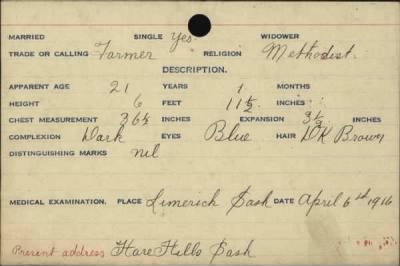 MARRIED SINGLE Yes WIDOWER
TRADE OR CALLING Farmer RELIGION Methodist.
DESCRIPTION.
APPARENT AGE 21 YEARS 1 MONTHS
HEIGHT 6 FEET 1 1/2 INCHES
CHEST MEASUREMENT 36 1/2 INCHES EXPANSION 3 1/2 INCHES
COMPLEXION Dark EYES Blue HAIR DK Brown
DISTINGUISHING MARKS nil
MEDICAL EXAMINATION. PLACE Limerick Sask DATE April 6th 1916
Present address Hare Hills Sask